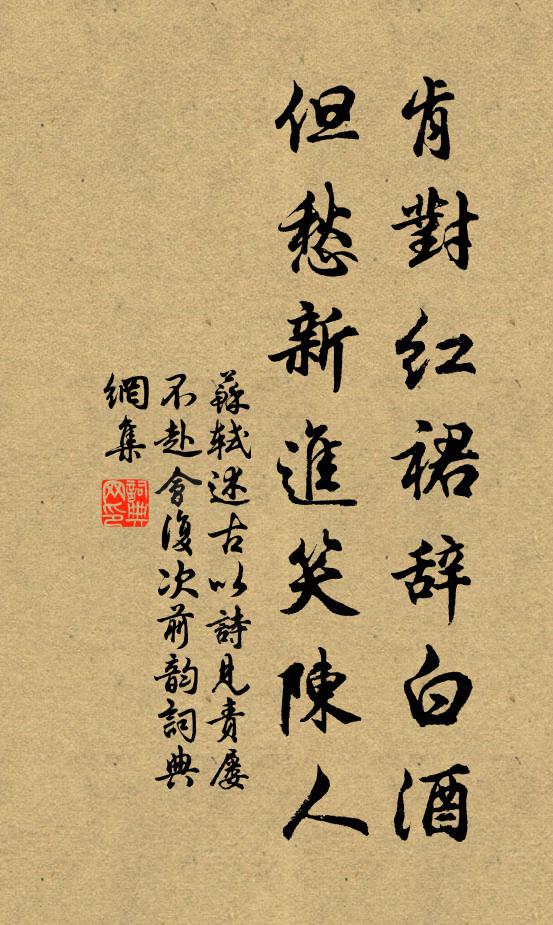 肯對红裙辞白酒
但愁新進笑陳人
蘇軾述古以詩見責屡
不赴會復次前韵詞典
網集
詞典
网印